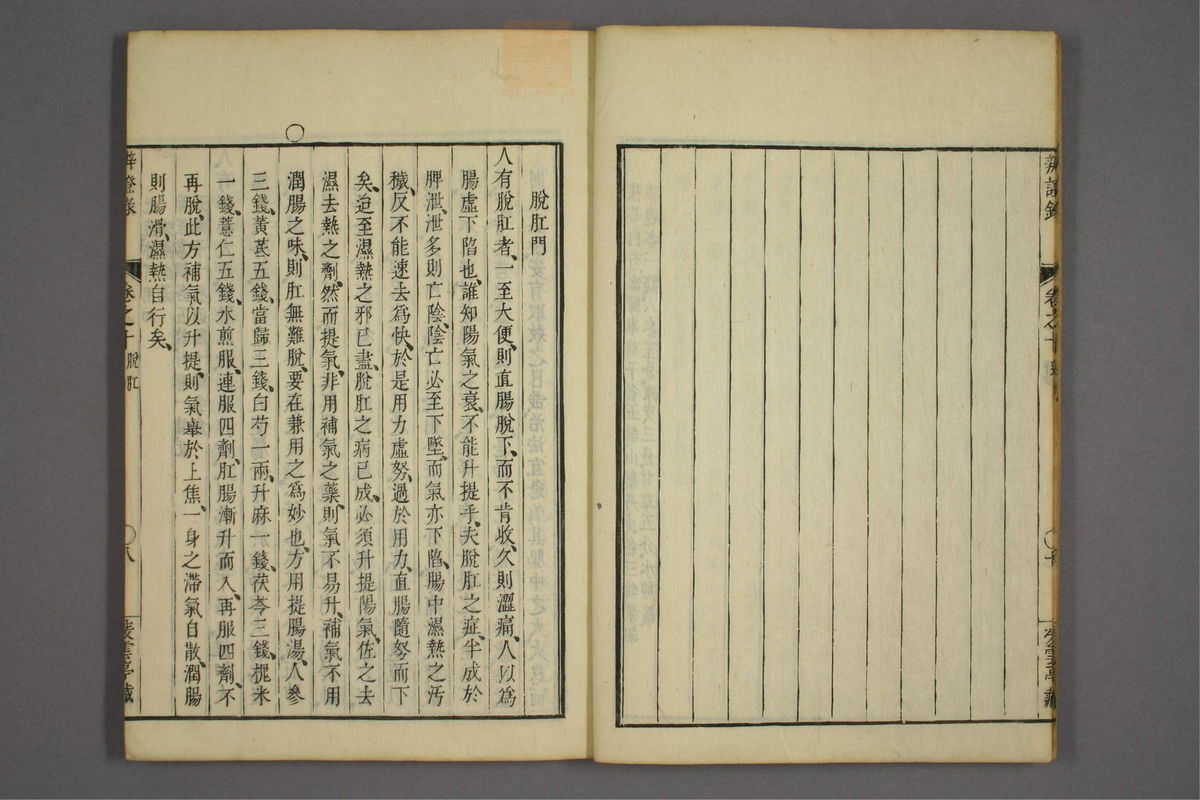 辨證錄 卷之十 凌雲亭藏
脫肛門
人有脫肛者、一至大便、則直腸脫下、而不肯收、久則澀痛、人以爲
腸虛下陷也、誰知陽氣之衰、不能升提乎、夫脫肛之症、半成於
脾泄、泄多則亡陰、陰亡必至下墜、而氣亦下陷、腸中濕熱之汚
穢、反不能速去爲快、於是用力虛努、過於用力、直腸隨努而下
矣、迨至濕熱之邪已盡、脫肛之病已成、必須升提陽氣、佐之去
濕去熱之劑、然而提氣、非用補氣之藥、則氣不易升、補氣不用
潤腸之味、則肛無難脫、要在兼用之爲妙也、方用提腸湯、人參
三錢、黃芪五錢、當歸三錢、白芍一兩、升麻一錢、茯苓三錢、槐米
一錢、薏仁五錢、水煎服、連服四劑、肛腸漸升而入、再服四劑、不
再脫、此方補氣以升提、則氣舉於上焦、一身之滯氣自散、潤腸
則腸滑、濕熱自行矣、
辨證錄 卷之十 脫肛 八 凌雲亭藏